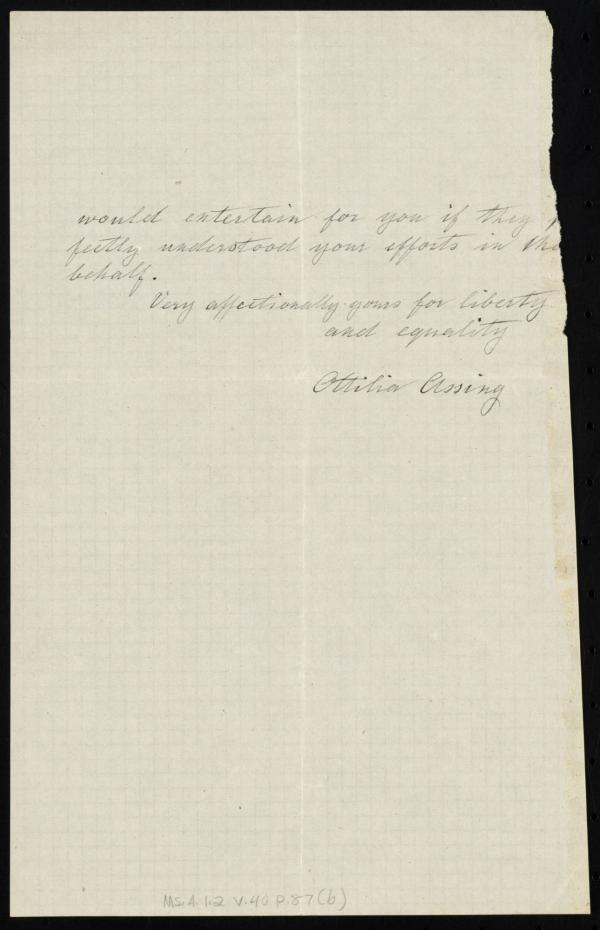 would entertain for you if they p
fectly understood your efforts in the
behalf.
Very affectionally yours for liberty
and equality
Ottilia Assing
Ms.A.1.2 V.40 P.87(b)